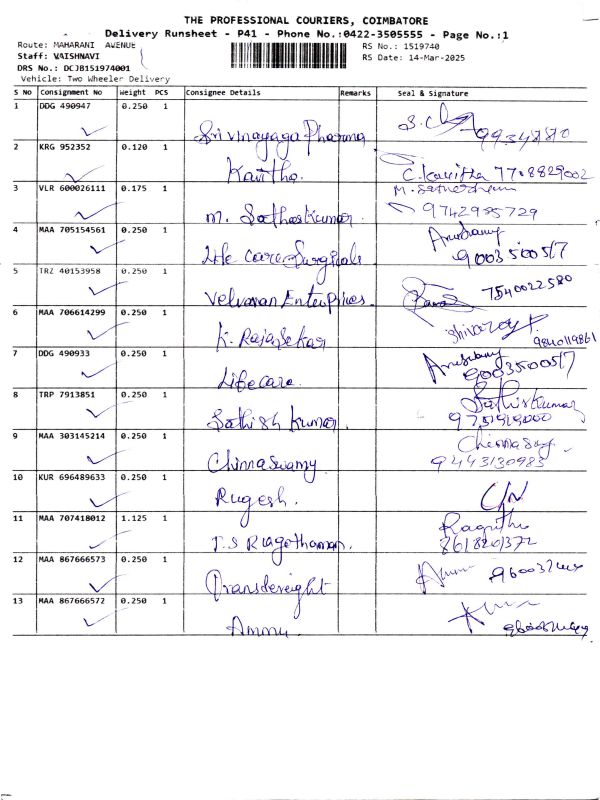 THE PROFESSIONAL COURIERS, COIMBATORE
Delivery Runsheet - P41 - Phone No.:0422-3505555 - Page No.:1
Route: MAHARANI AVENUE RS No.: 1519740
Staff: VAISHNAVI RS Date: 14-Mar-2025
DRS No.: DCJB151974001
Vehicle: Two Wheeler Delivery
S NO Consignment No Weight PCS Consignee Details Remarks Seal & Signature
1 DDG 490947 0.250 1
Sri Vinayaga Pharma
2 KRG 952352 0.120 1
Kavitha. C. Kavitha 7708829002
3 VLR 600026111 0.175 1
M. Sathoskumar. 9742995729
4 MAA 705154561 0.250 1
Life Care Surgicals 9003500517
5 TRZ 40153958 0.250 1
Velvanan Enterprices. 7540022580
6 MAA 706614299 0.250 1
K. Rajasekar 9840119861
7 DDG 490933 0.250 1
Lifecare. 9003500517
8 TRP 7913851 0.250 1
Sathish Kumar. Sathiskumar
9 MAA 303145214 0.250 1
Chinnaswamy 9443130983
10 KUR 696489633 0.250 1
Rugesh.
11 MAA 707418012 1.125 1
T.S Ragothaman.
12 MAA 867666573 0.250 1
13 MAA 867666572 0.250 1
Ammu.